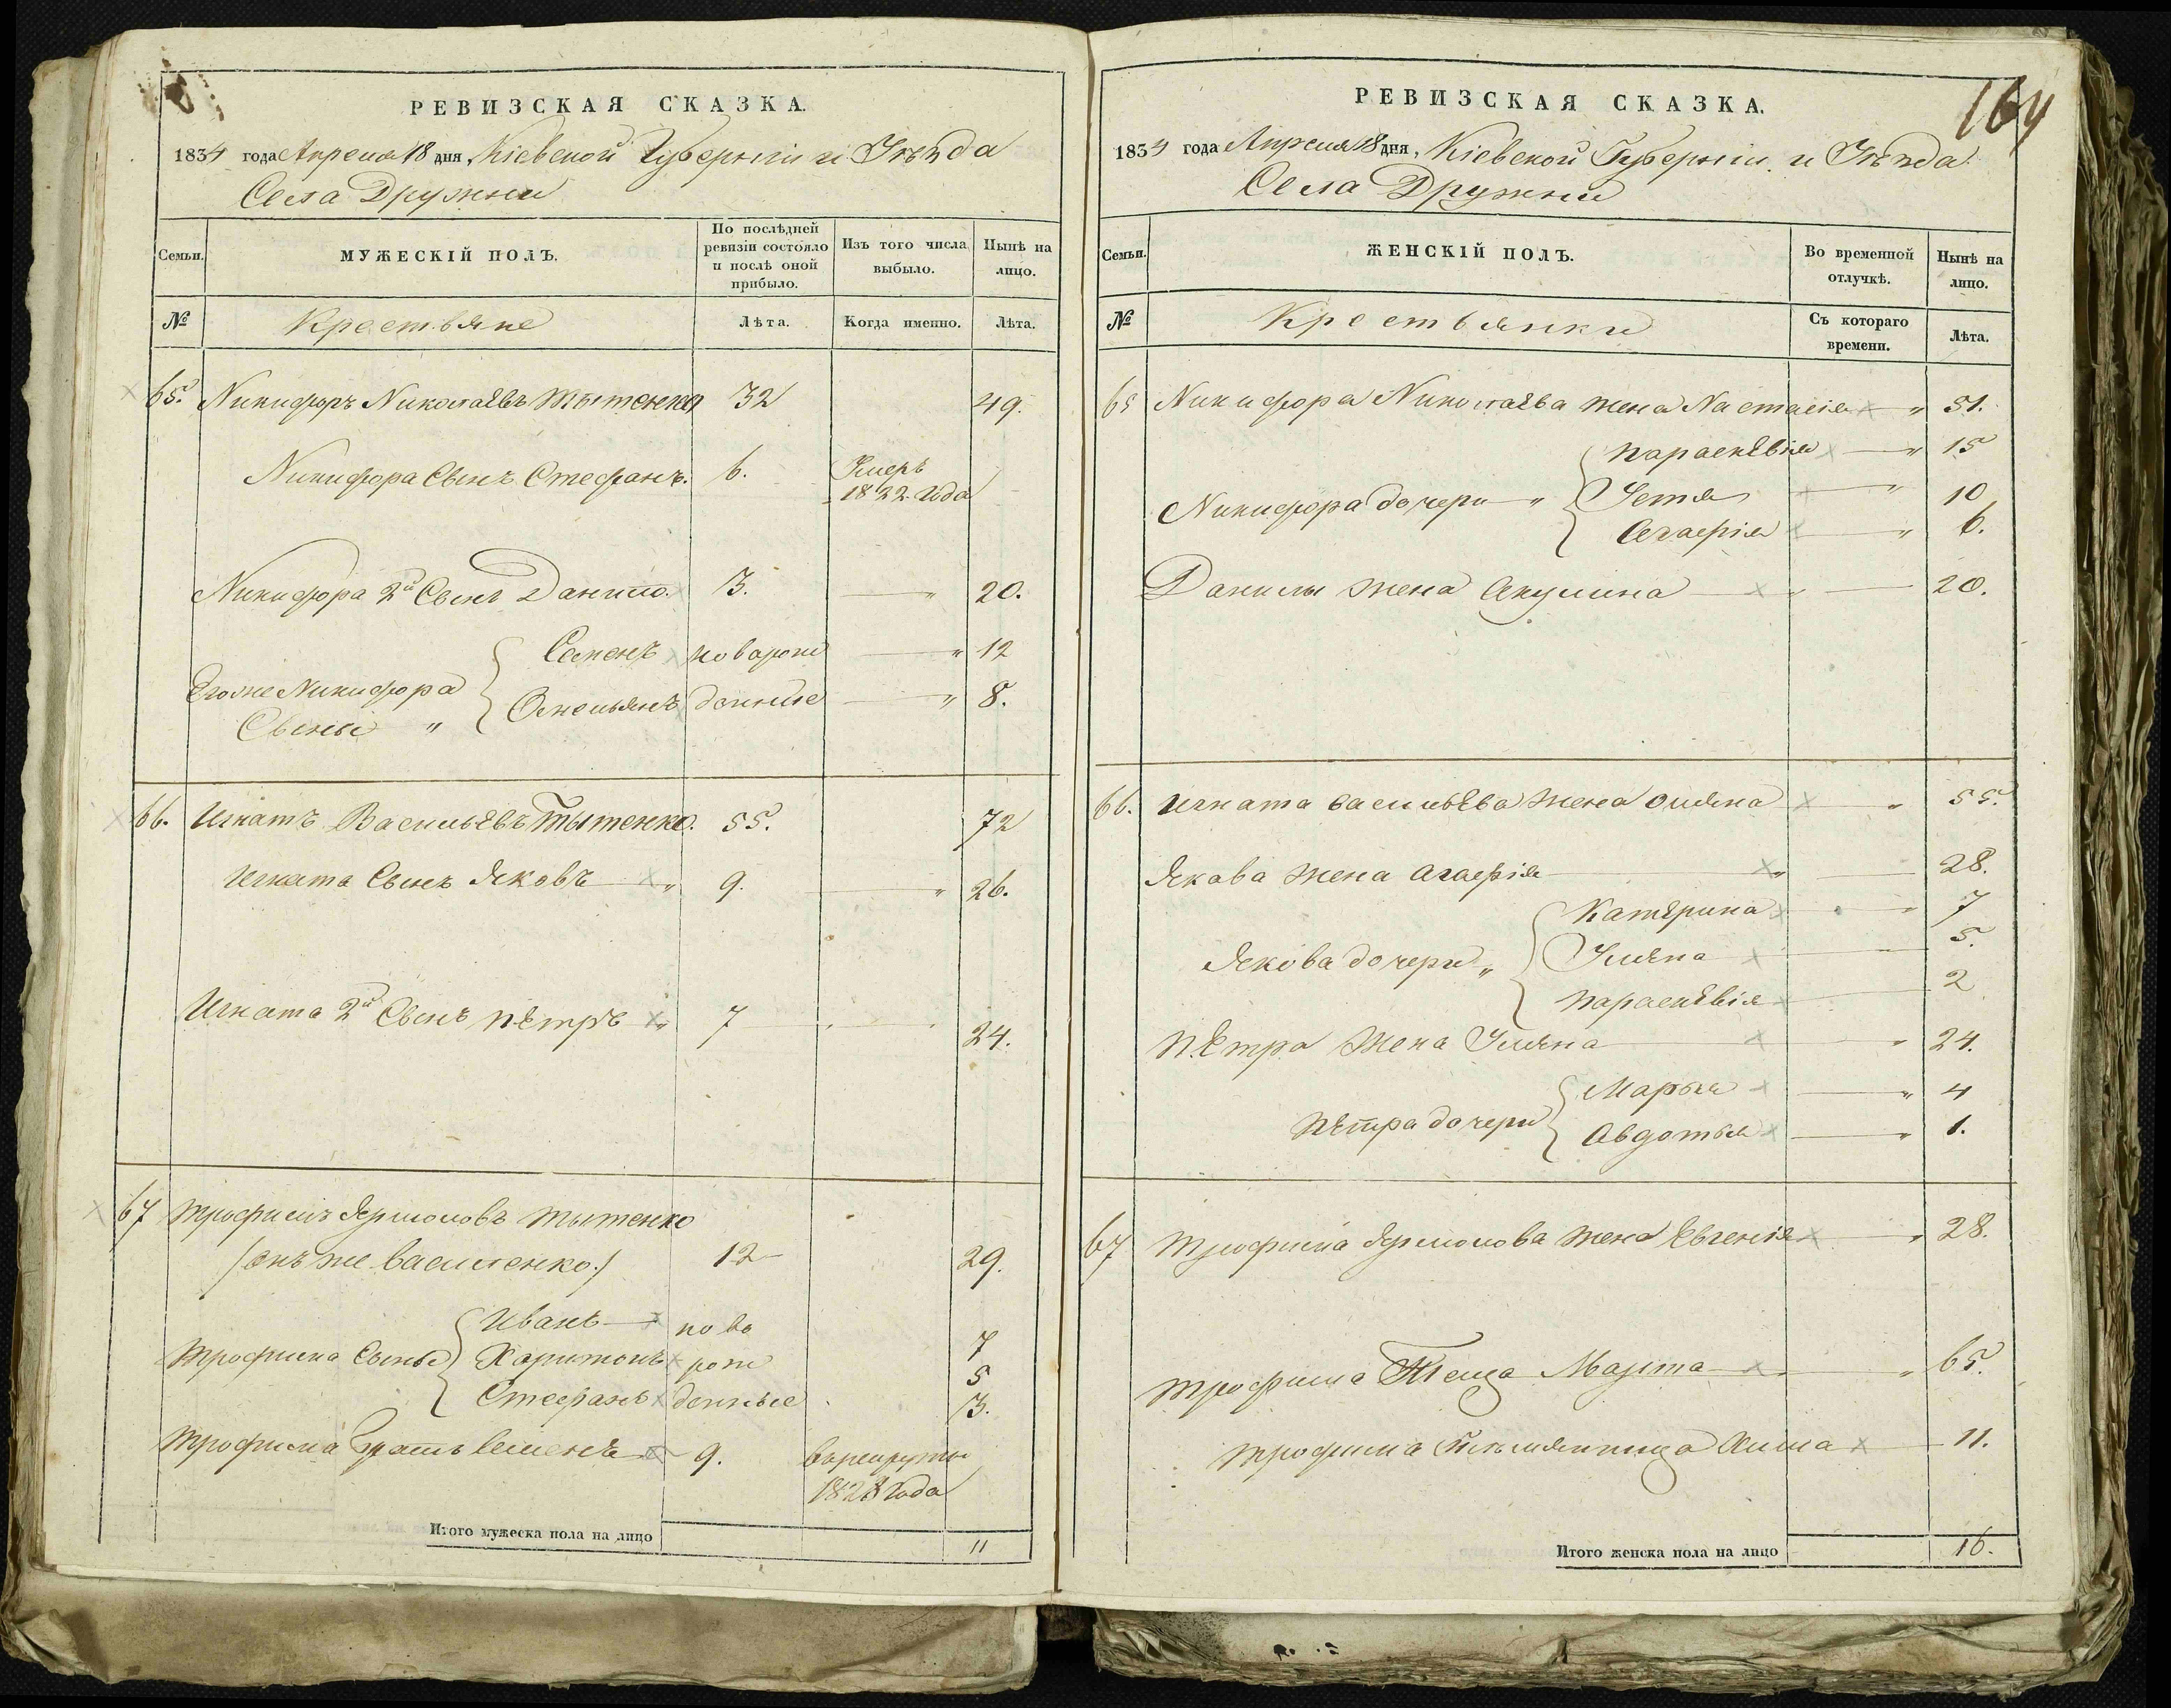 РЕВИЗСКАЯ СКАЗКА.
1834 года Апреля 18 дня, Кіевской Губерніи и Уѣзда
Села Дружни
Семьи.
МУЖЕСКІЙ ПОЛЪ.
По послѣдней ревизіи состояло и послѣ оной прибыло.
Изъ того числа выбыло.
Нынѣ на лицо.
№
Крестьяне
Лѣта.
Когда именно.
Лѣта.
65. Никифоръ Николаевъ Тытенко 32 49.
Никифора Сынъ Стефанъ. 6. Умеръ
1822 Года
Никифора 2й Сынъ Данило. 3. 20.
Его же Никифора Сыны {Семенъ новорож 12
Омельянъ денные 8.
66. Игнатъ Васильевъ Тытенко. 55. 72
Игната Сынъ Яковъ 9. 26.
Игната 2й Сынъ Петръ 7 24.
67 Трофимъ Ярмоловъ Тытенко
/онъ же Василенко./ 12 29.
Трофима Сыны {Иванъ ново 7
Харитонъ рож 5
Стефанъ денные 3.
Трофима Братъ Семенъ 9. в рекруты
1828 Года
Итого мужеска пола на лицо 11
164
РЕВИЗСКАЯ СКАЗКА.
1834 года Апреля 18 дня, Кіевской Губерніи и Уѣзда
Села Дружни
Семьи.
ЖЕНСКІЙ ПОЛЪ.
Во временной отлучкѣ.
Нынѣ на лицо.
№
Крестьянки
Съ котораго времени.
Лѣта.
65 Никифора Николаева жена Настасія 51.
Никифора дочери {Параскевія 15
Устя 10
Агафія 6.
Данилы жена Акулина 20.
66. Игната Васильева жена Оляна 55.
Якова жена Агафія 28.
Якова дочери {Катерина 7
Уляна 5.
Параскевія 2
Петра жена Уляна 24.
Петра дочери {Марья 4
Авдотья 1.
67 Трофима Ярмолова жена Евгенія 28.
Трофима Теща Марта 65.
Трофима Племянница Анна 11.
Итого женска пола на лицо 16.